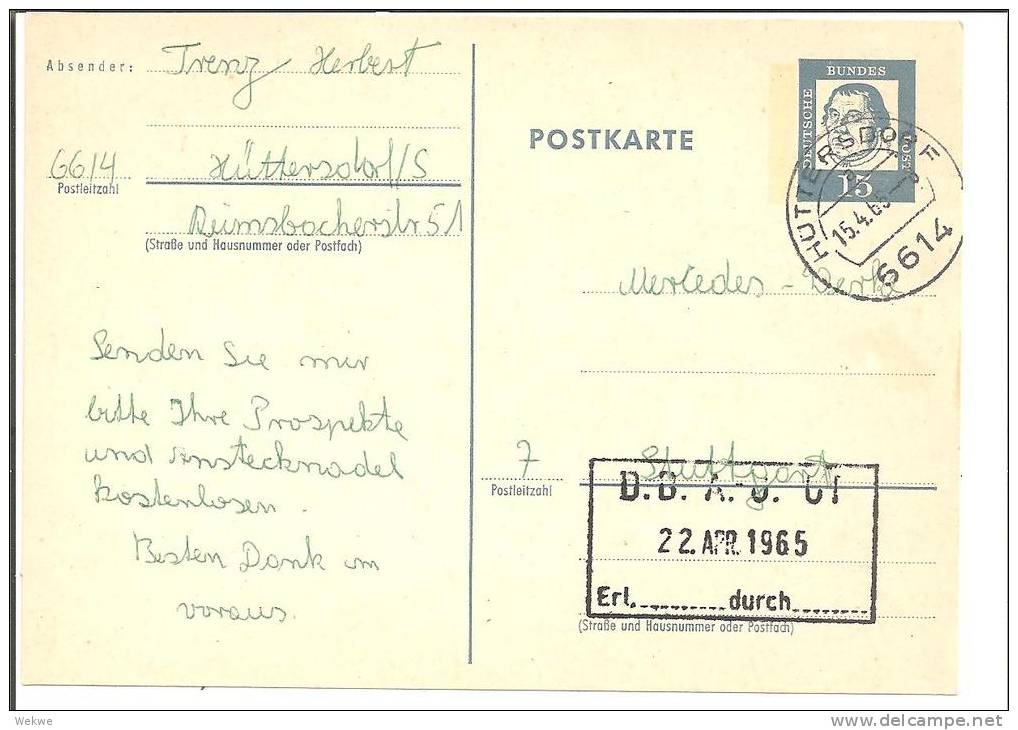 Absender: Trenz Herbert
6614 Hüttersdorf/S
Postleitzahl
51
(Straße und Hausnummer oder Postfach)
Senden Sie mir
bitte Ihre Prospekte
und Anstecknadel
kostenlosen.
Besten Dank im
voraus.
POSTKARTE
DEUTSCHE BUNDES POST
15
HÜTTERSDORF
15.4.65
6614
Mercedes-Werke
7 Stuttgart
Postleitzahl
22. APR. 1965
Erl. durch
(Straße und Hausnummer oder Postfach)
Wekwe
delcampe.net